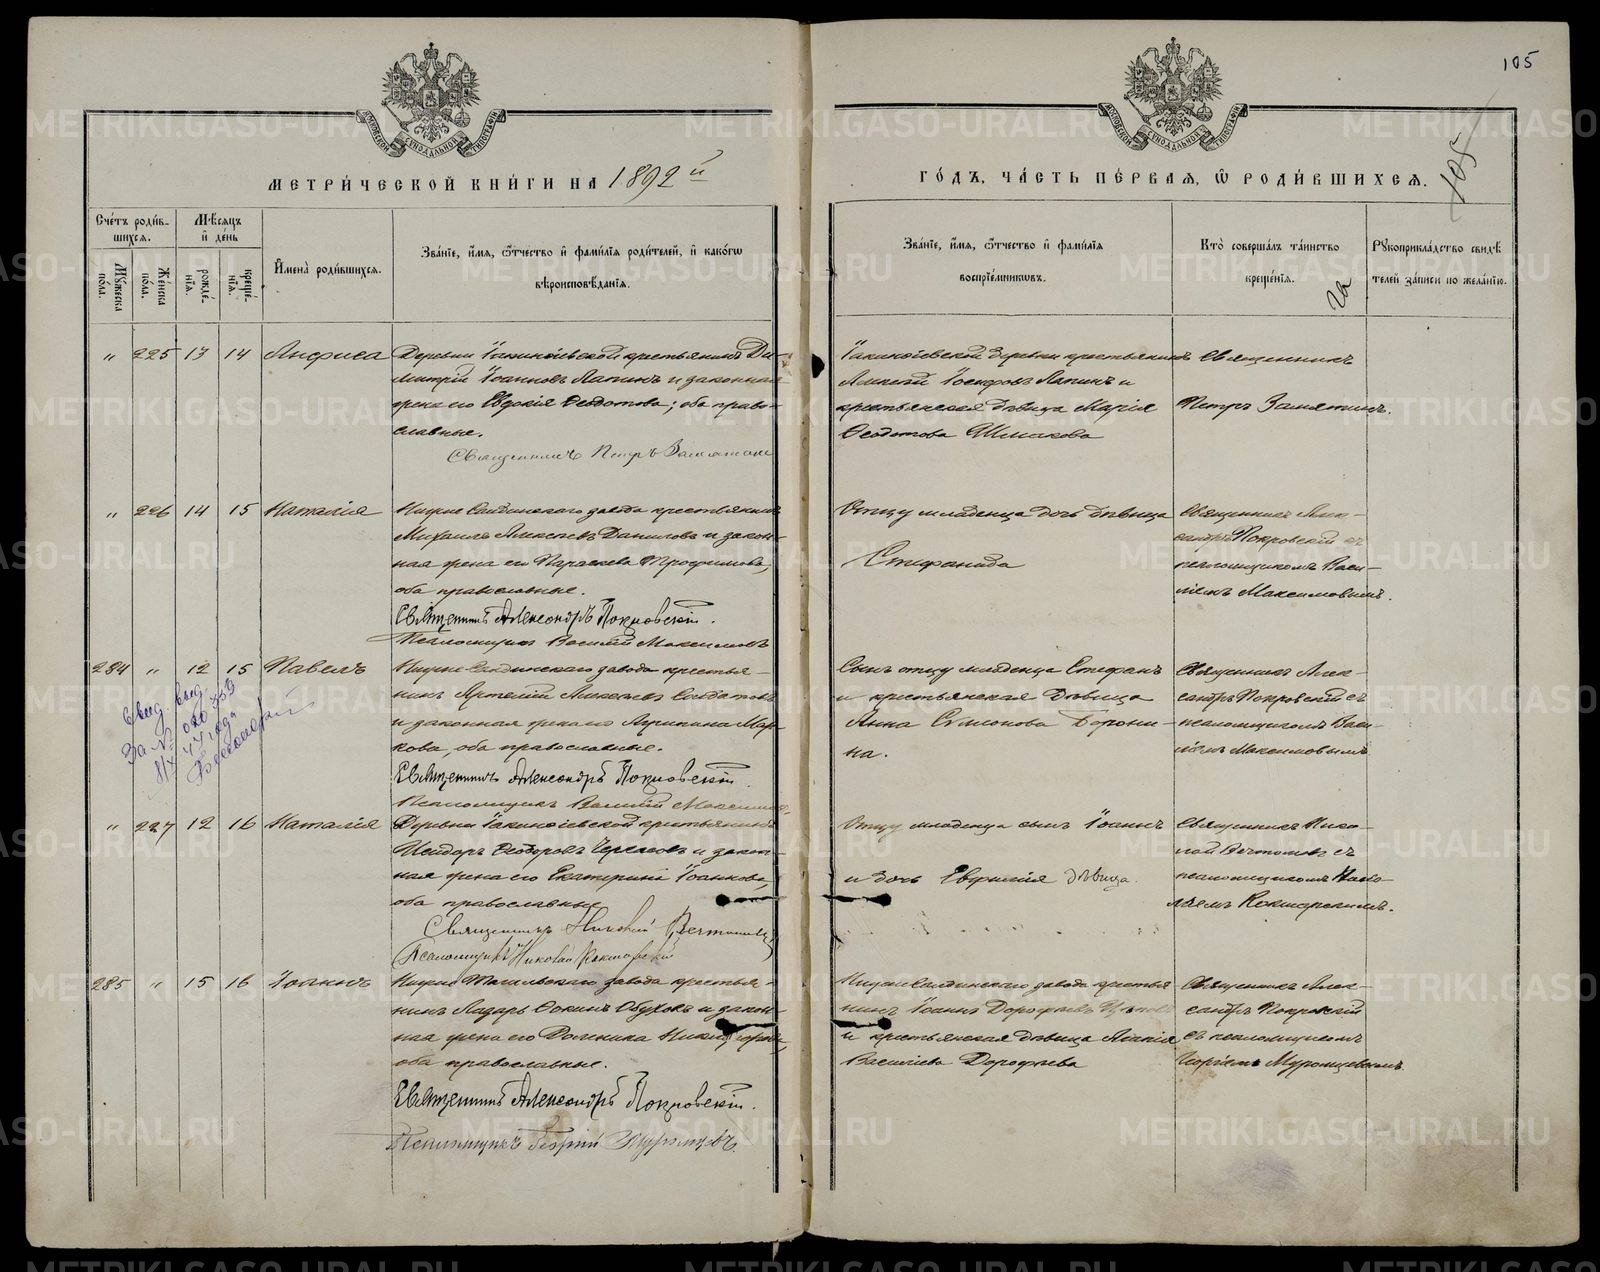 105
105
МЕТРИ́ЧЕСКОЙ КНИ́ГИ НА 1892 й
ГО́ДЪ, ЧА́СТЬ ПЕ́РВАЯ, Ѿ РОДИ́ВШИХСЯ.
Сче́тъ роди́в-
шихся.
Мѣ́сяцъ
и҆ де́нь
Му́жеска
по́ла.
Же́нска
по́ла.
рожде́-
нїя.
креще́-
нїя.
И҆мена̀ роди́вшихся.
Зва́нїе, и҆́мя, ѻ҆́тчество и҆ фами́лїя роди́телей, и҆ како́гѡ
вѣроисповѣ́данїя.
Зва́нїе, и҆́мя, ѻ҆́тчество и҆ фами́лїя
воспрїе́мниковъ.
Кто̀ соверша́лъ та́инство
креще́нїя.
Рꙋкоприкла́дство свидѣ́
телей за́писи по жела́нїю.
" 225 13 14 Анфиса
Деревни Іакинѳіевской крестьянинъ Ди-
митрій Іоанновъ Лапинъ и законная
жена его Евдокія Ѳеодотова; оба право-
славные.
Священникъ Петръ Замятинъ
Іакинѳіевской деревни крестьянинъ
Алексій Іосифовъ Лапинъ и
крестьянская дѣвица Марія
Ѳеодотова Шмакова
Священникъ
Петръ Замятинъ.
" 226 14 15 Наталія
Нижне Салдинскаго завода крестьянинъ
Михаилъ Алексѣевъ Даниловъ и закон-
ная жена его Параскева Трофимова,
оба православные.
Священникъ Александръ Покровскій.
Псаломщикъ Василій Максимовъ
Отцу младенца дочь дѣвица
Стефанида
Священникъ Алек-
сандръ Покровскій съ
псаломщикомъ Васи-
ліемъ Максимовымъ.
284 " 12 15 Павелъ
Нижне Салдинскаго завода крестья-
нинъ Артемій Алексѣевъ Солдатовъ
и законная жена его Агрипина Мар-
кова, оба православные.
Священникъ Александръ Покровскій.
Псаломщикъ Василій Максимовъ
Сынъ отцу младенца Стефанъ
и крестьянская дѣвица
Анна Симонова Дорони-
на.
Священникъ Алек-
сандръ Покровскій съ
псаломщикомъ Васи-
ліемъ Максимовымъ
" 227 12 16 Наталія
Деревни Іакинѳіевской крестьянинъ
Исидоръ Ѳеодоровъ и закон-
ная жена его Екатерина Іоаннова,
оба православные
Священникъ Николай
Псаломщикъ Николай
Отцу младенца сынъ Іоаннъ
и дочь Евфимія дѣвица.
Священникъ Нико-
лай съ
псаломщикомъ Нико-
лаемъ
285 " 15 16 Іоаннъ
Нижне Тагильскаго завода крестья-
нинъ Лазарь Обуховъ и закон-
ная жена его Домника
оба православные.
Священникъ Александръ Покровскій.
Псаломщикъ Георгій Муромцевъ.
Нижне Салдинскаго завода крестья
нинъ Іоаннъ Дороѳеевъ
и крестьянская дѣвица
Василіева Дороѳеева
Священникъ Алек-
сандръ Покровскій
съ псаломщикомъ
Георгіемъ Муромцевымъ.